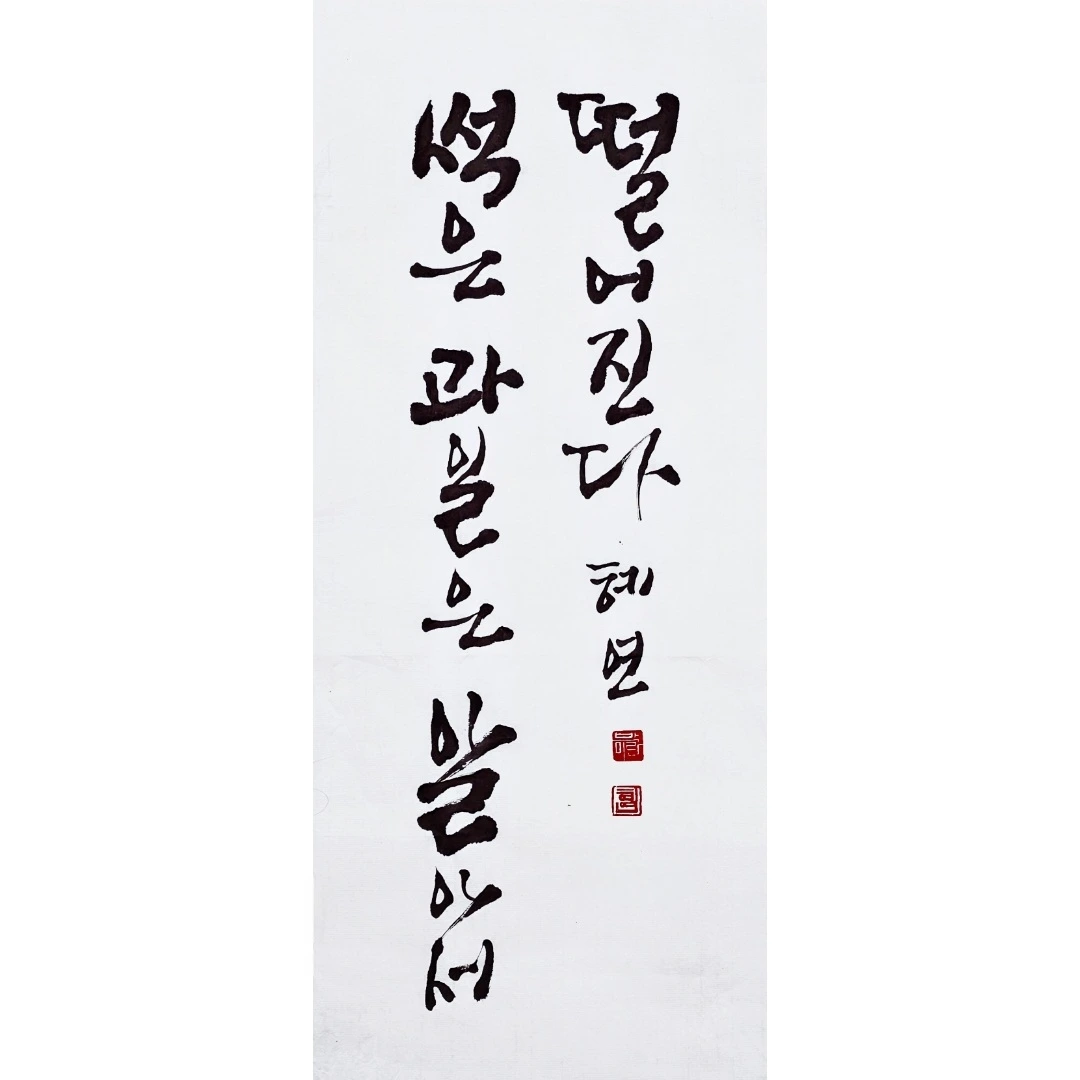 썩은 과일은 알아서
떨어진다 혜연